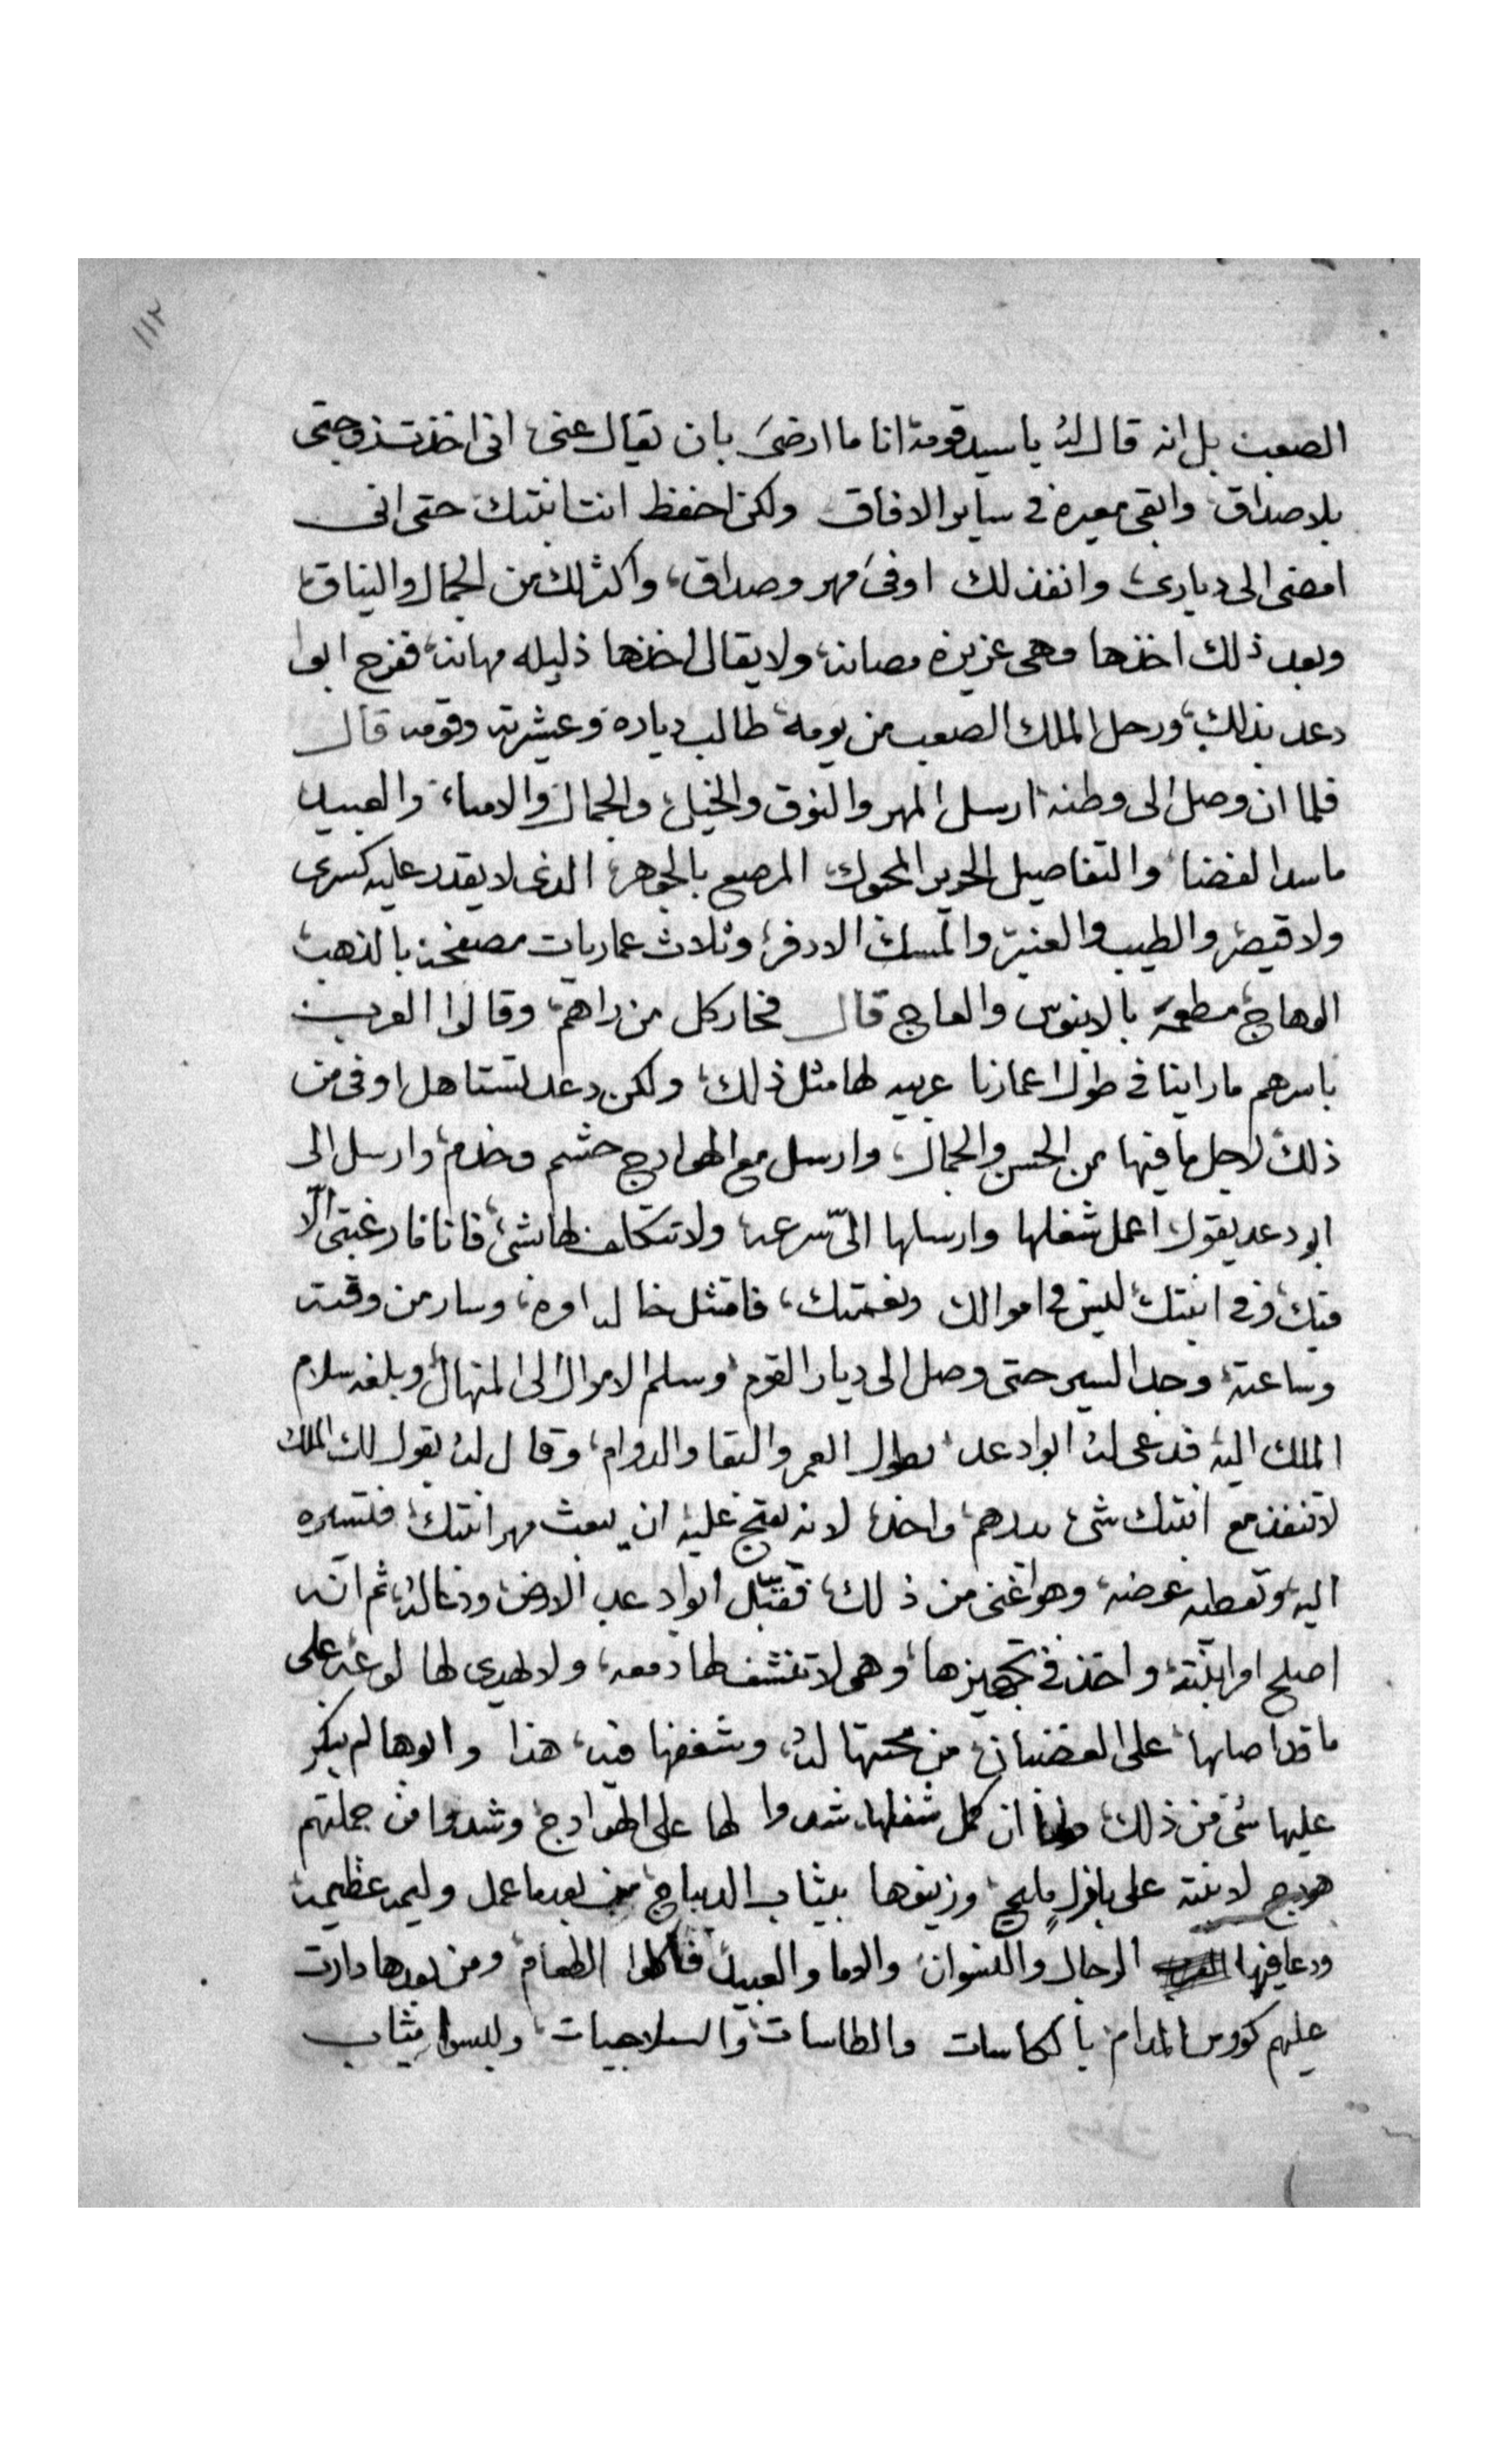 ١١٢
الصعب بل انه قال له يا سيد قومه انا ما ارضى بان يقال عنى انى اخذت زوجتى
بلا صداق وابقى معيره في ساير الافاق ولكن احفظ انت ابنتك حتى انى
امضى الى ديارى وانفذ لك اوفى مهر وصداق واكثر لك من الجمال والنياق
وبعد ذلك اخذها وهى عزيزه مصانه ولا يقال اخذها ذليله مهانه ففرح ابوا
دعد بذلك ورحل الملك الصعب من يومه طالب دياره وعشيرته وقومه قال
فلما ان وصل الى وطنه ارسل المهر والنوق والخيل والجمال والاماء والعبيد
ما سد الفضا والتفاصيل الحرير المحوك المرصع بالجوهر الذى لا يقدر عليه كسرى
ولا قيصر والطيب والعنبر والمسك الادفر وثلاث عماريات مصفحه بالذهب
الوهاج مطعمه بالابنوس والعاج قال فحار كل من راهم وقالوا العرب
باسرهم ما راينا في طول اعمارنا عربيه لها مثل ذلك ولكن دعد تستاهل اوفى من
ذلك لاجل ما فيها من الحسن والجمال وارسل مع الهوادج حشم وخدم وارسل الى
ابو دعد يقول اعمل شغلها وارسلها الىّ سرعه ولا تتكلف لها شئ فانا فا رغبتى الّا
فيك وفى ابنتك ليس في اموالك ونعمتك فامتثل خاله امره وسار من وقته
وساعته وجد السير حتى وصل الى ديار القوم وسلم الاموال الى المنهال وبلغه سلام
الملك اليه فدعى له ابوا دعد بطول العمر والبقا والدوام وقال له يقول لك الملك
لا تنفذ مع ابنتك شئ بدرهم واحد لانه يقبح عليه ان يبعث مهر ابنتك فتسيره
اليه وتعطيه عوضه وهو اغنى من ذلك فقبّل ابوا دعد الارض ودعا له ثم انه
اصلح امر ابنته واخذ في تجهيزها وهى لا تنشف لها دمعه ولا تهدى لها لوعه على
ما قد اصابها على الغضبان من محبتها له وشغفها فيه هذا وابوها لم ينكر
عليها شئ من ذلك ولما ان كمل شغلها شدوا لها على الهوادج وشدوا من جملتهم
هودج لابنته على بازل مليح وزينوها بثياب الديباج من بعد ما عمل وليمه عظيمه
ودعا فيها الرجال والنسوان والاما والعبيد فاكلوا الطعام ومن بعدها دارت
عليهم كووس المدام بالكاسات والطاسات والسلاحيات ولبسوا ثياب